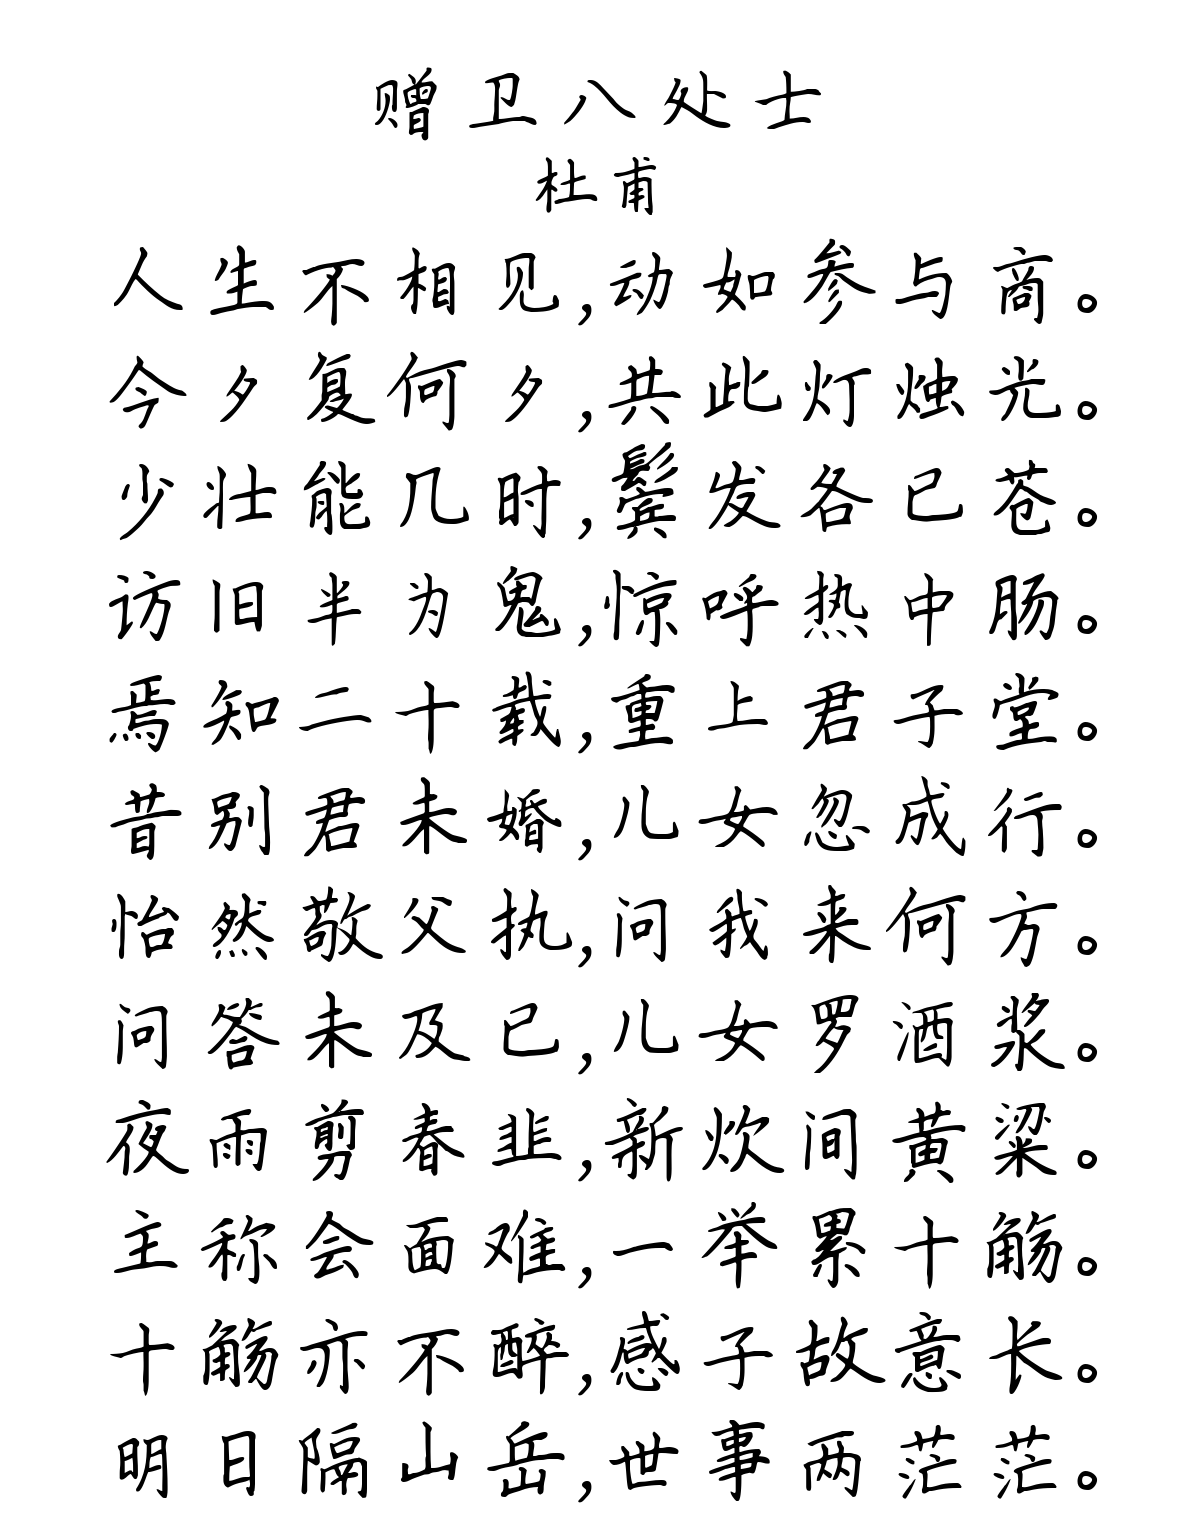 赠卫八处士
杜甫
人生不相见,动如参与商。
今夕复何夕,共此灯烛光。
少壮能几时,鬓发各已苍。
访旧半为鬼,惊呼热中肠。
焉知二十载,重上君子堂。
昔别君未婚,儿女忽成行。
怡然敬父执,问我来何方。
问答未及已,儿女罗酒浆。
夜雨剪春韭,新炊间黄粱。
主称会面难,一举累十觞。
十觞亦不醉,感子故意长。
明日隔山岳,世事两茫茫。